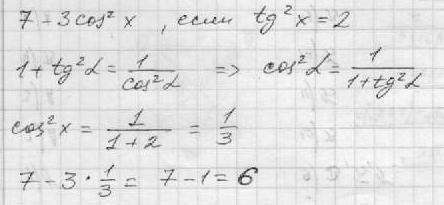 7 - 3cos² x , если tg² x = 2
1 + tg² α = 1/cos² α => cos² α = 1/(1 + tg² α)
cos² x = 1/(1 + 2) = 1/3
7 - 3 · 1/3 = 7 - 1 = 6